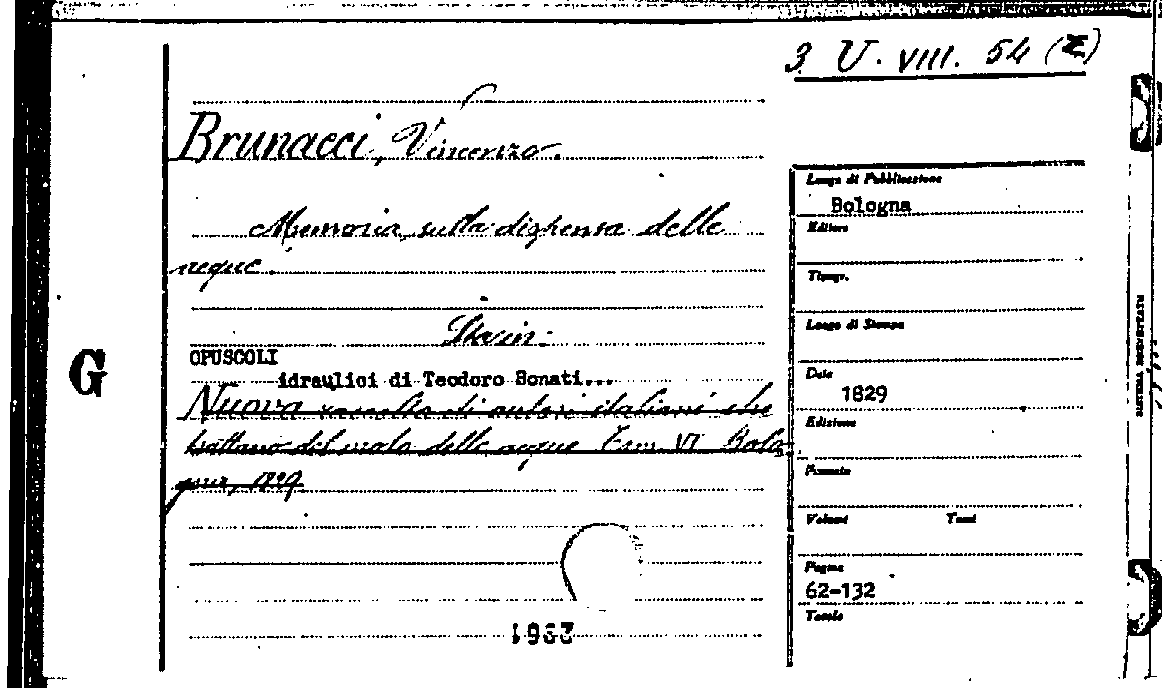 3 U. VIII. 54 (Z)
Brunacci, Vincenzo.
Memoria sulla dispensa delle
acque.
Sta in:
OPUSCOLI
idraulici di Teodoro Bonati...
Nuova raccolta di autori italiani che
trattano del moto delle acque Tom. VI Bolo
gna, 1829
G
1963
Luogo di Pubblicazione
Bologna
Editore
Tipogr.
Luogo di Stampa
Data
1829
Edizione
Formato
Volumi Tomi
Pagine
62-132
Tavole